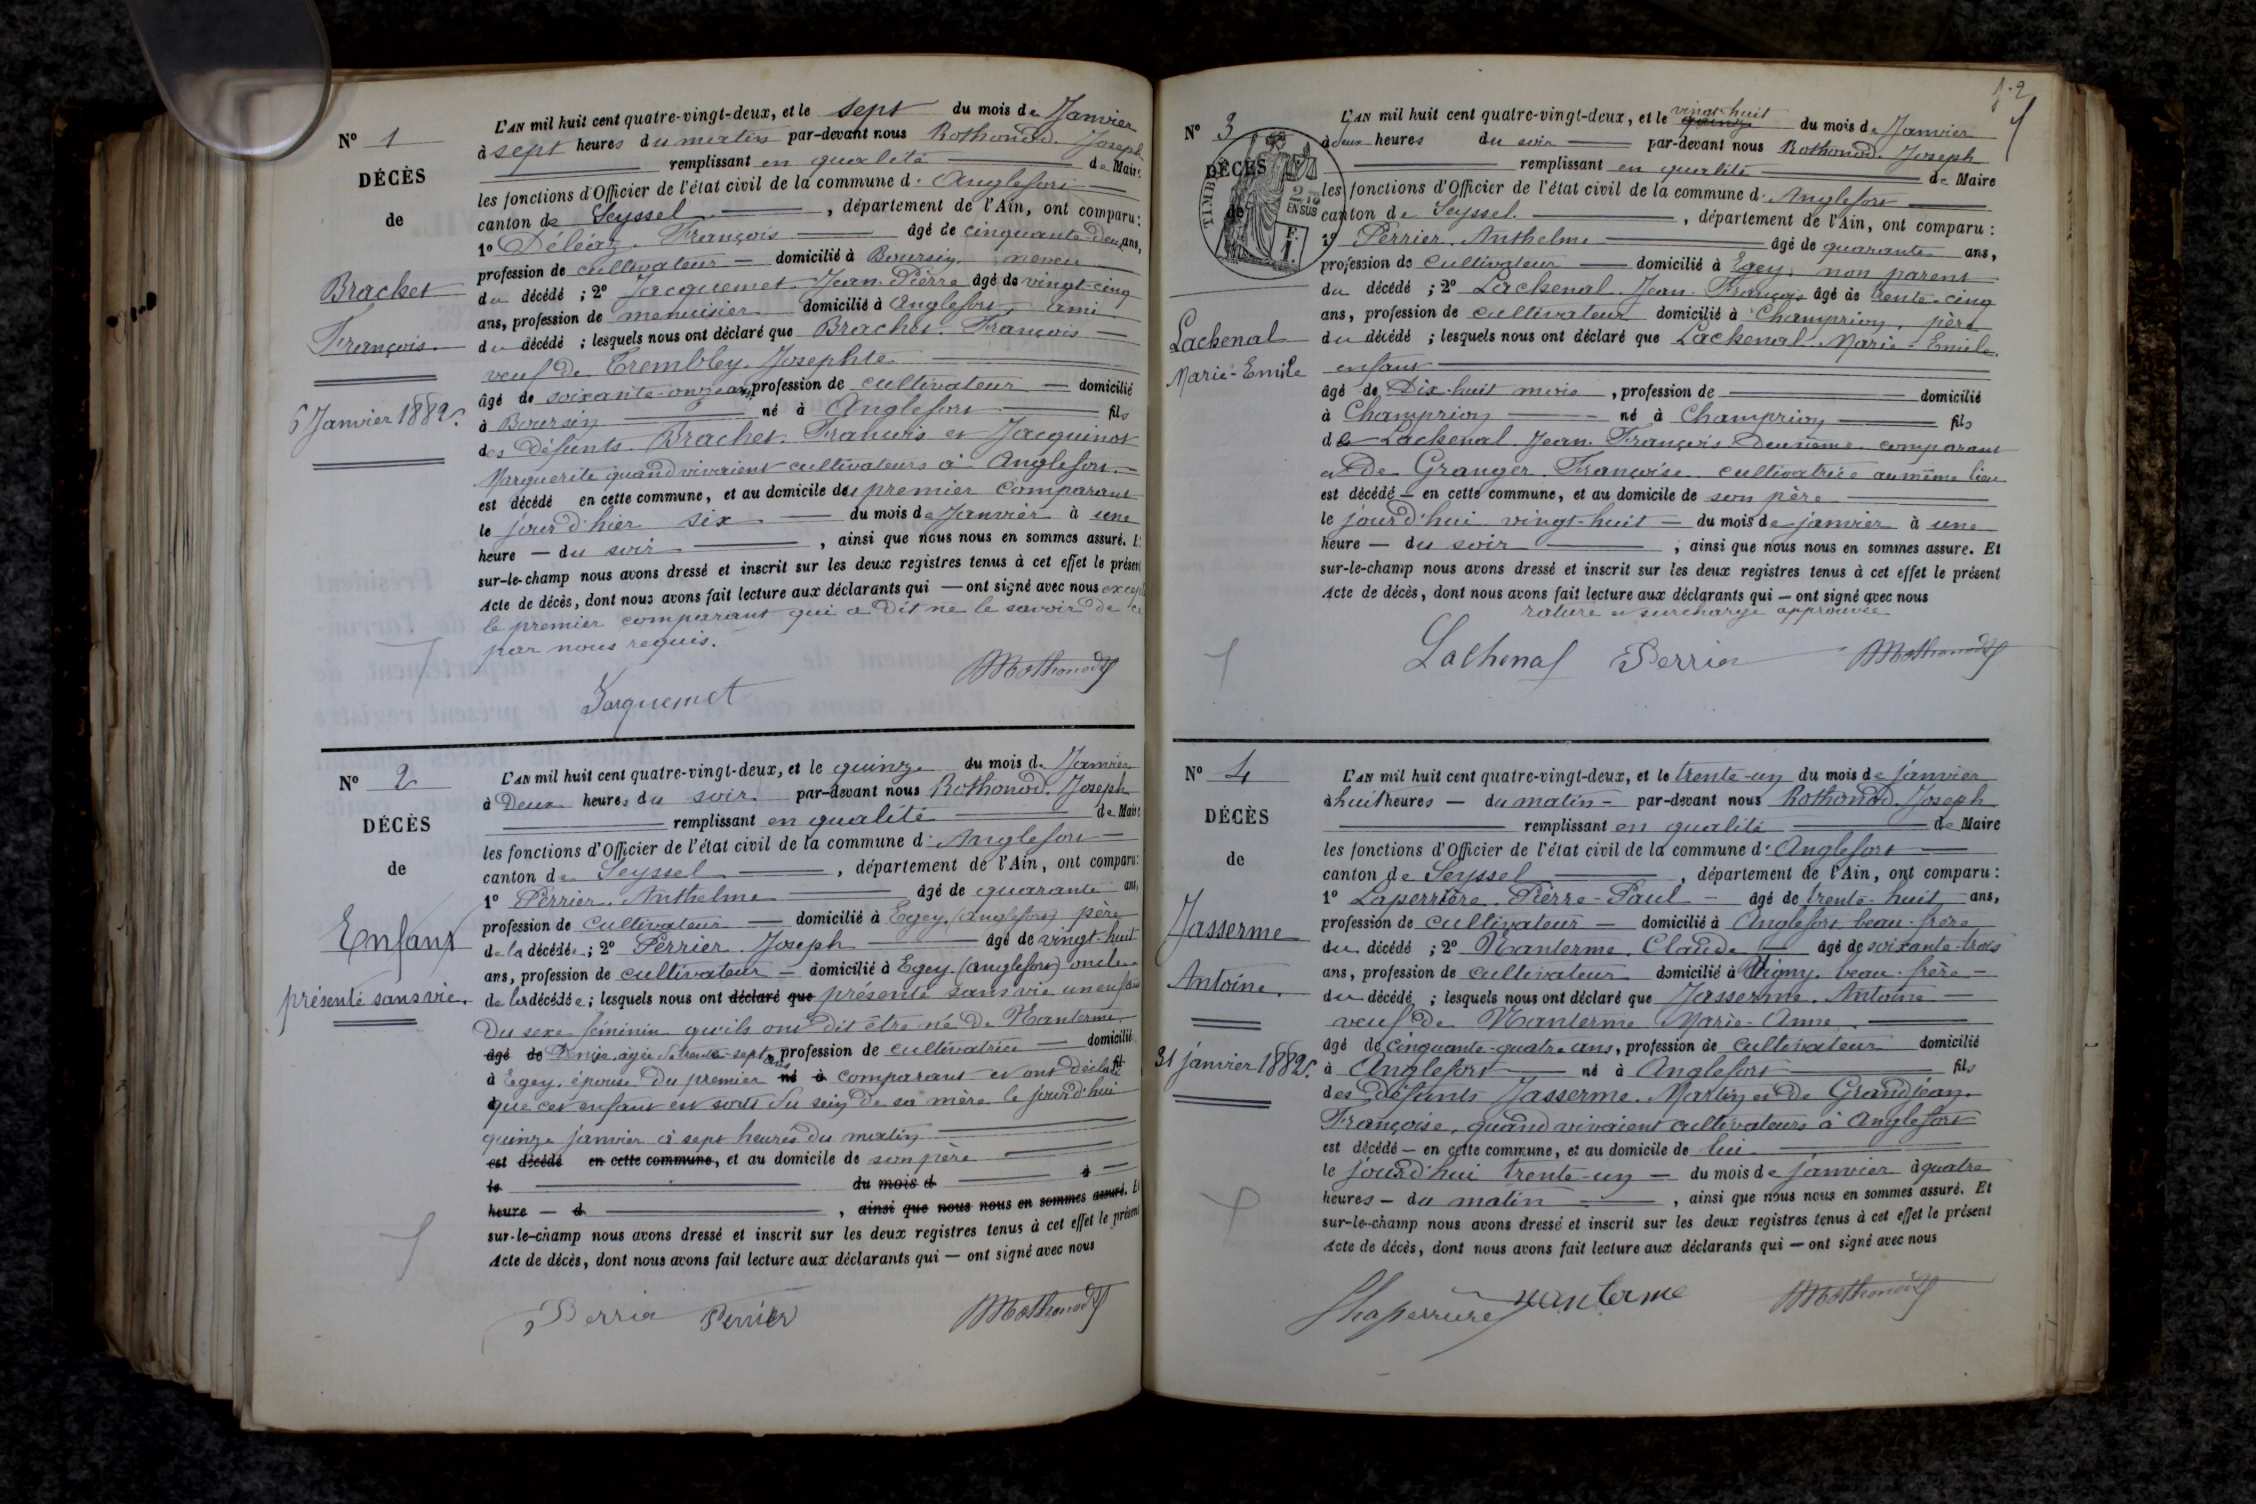 N° 1
DÉCÈS
de
Brachet
François.
6 Janvier 1882.
L'AN mil huit cent quatre-vingt-deux, et le sept du mois de Janvier
à sept heures du matin par-devant nous Rothonod. Joseph
remplissant en qualité de Maire
les fonctions d'Officier de l'état civil de la commune d' Anglefort
canton de Seyssel, département de l'Ain, ont comparu :
1° Déléaz. François âgé de cinquante-deux ans,
profession de cultivateur domicilié à Boursin neveu
du décédé ; 2° Jacquemet. Jean Pierre âgé de vingt-cinq
ans, profession de menuisier domicilié à Anglefort, ami
du décédé ; lesquels nous ont déclaré que Brachet. François
veuf de Trembley. Josephte
âgé de soixante-onze ans, profession de cultivateur domicilié
à Boursin né à Anglefort fils
des défunts Brachet. François et Jacquinot
Marguerite quand vivaient cultivateurs à Anglefort.
est décédé en cette commune, et au domicile du premier comparant
le jour d'hier six du mois de Janvier à une
heure du soir, ainsi que nous nous en sommes assuré. Et
sur-le-champ nous avons dressé et inscrit sur les deux registres tenus à cet effet le présent
Acte de décès, dont nous avons fait lecture aux déclarants qui — ont signé avec nous excepté
le premier comparant qui a dit ne le savoir de ce
par nous requis.
Jacquemet
JRothonod
N° 2
DÉCÈS
de
Enfant
présenté sans vie.
L'AN mil huit cent quatre-vingt-deux, et le quinze du mois de Janvier
à Deux heures du soir par-devant nous Rothonod. Joseph
remplissant en qualité de Maire
les fonctions d'Officier de l'état civil de la commune d' Anglefort
canton de Seyssel, département de l'Ain, ont comparu :
1° Perrier. Anthelme âgé de quarante ans,
profession de cultivateur domicilié à Egey (Anglefort) père
de la décédée ; 2° Perrier. Joseph âgé de vingt-huit
ans, profession de cultivateur domicilié à Egey (Anglefort) oncle
de la décédée ; lesquels nous ont déclaré que présenté sans vie un enfant
du sexe féminin qu'ils ont dit être né de Nanterme
âgé de âgée de trente-sept ans profession de cultivatrice domicilié
à Egey, épouse du premier né à comparant et ont déclaré
que cet enfant est sorti du sein de sa mère le jour d'hui
quinze janvier à sept heures du matin
est décédé en cette commune, et au domicile de son père
le du mois d à
heure — d, ainsi que nous nous en sommes assuré. Et
sur-le-champ nous avons dressé et inscrit sur les deux registres tenus à cet effet le présent
Acte de décès, dont nous avons fait lecture aux déclarants qui — ont signé avec nous
Perrier Perrier JRothonod
N° 3
DÉCÈS
de
TIMB
2/10
EN SUS
Lachenal
Marie-Emile
L'AN mil huit cent quatre-vingt-deux, et le quinze vingt-huit du mois de Janvier
à deux heures du soir par-devant nous Rothonod. Joseph
remplissant en qualité de Maire
les fonctions d'Officier de l'état civil de la commune d' Anglefort
canton de Seyssel., département de l'Ain, ont comparu :
1° Perrier. Anthelme âgé de quarante ans,
profession de cultivateur domicilié à Egey, non parent
du décédé ; 2° Lachenal. Jean François âgé de trente-cinq
ans, profession de cultivateur domicilié à Champrion, père
du décédé ; lesquels nous ont déclaré que Lachenal. Marie-Emile.
enfant
âgé de Dix-huit mois, profession de domicilié
à Champrion né à Champrion fils
de Lachenal. Jean François Deuxième comparant
et de Granger. Françoise cultivatrice au même lieu
est décédé — en cette commune, et au domicile de son père
le jourd'hui vingt-huit du mois de janvier à une
heure — du soir, ainsi que nous nous en sommes assuré. Et
sur-le-champ nous avons dressé et inscrit sur les deux registres tenus à cet effet le présent
Acte de décès, dont nous avons fait lecture aux déclarants qui — ont signé avec nous
rature et surcharge approuvée
Lachenal Perrier JRothonod
N° 4
DÉCÈS
de
Jasserme
Antoine.
31 janvier 1882.
L'AN mil huit cent quatre-vingt-deux, et le trente-un du mois de janvier
à huit heures — du matin — par-devant nous Rothonod. Joseph
remplissant en qualité de Maire
les fonctions d'Officier de l'état civil de la commune d' Anglefort
canton de Seyssel, département de l'Ain, ont comparu :
1° Laperrière. Pierre-Paul — âgé de trente-huit ans,
profession de cultivateur — domicilié à Anglefort beau-frère
du décédé ; 2° Nanterme. Claude âgé de soixante-trois
ans, profession de cultivateur domicilié à Vigny. beau-frère
du décédé ; lesquels nous ont déclaré que Jasserme. Antoine
veuf de Nanterme Marie-Anne
âgé de cinquante-quatre ans, profession de cultivateur domicilié
à Anglefort né à Anglefort fils
des défunts Jasserme. Martin et de Grandjean.
Françoise, quand vivaient cultivateurs à Anglefort
est décédé — en cette commune, et au domicile de lui
le jourd'hui trente-un — du mois de janvier à quatre
heures — du matin, ainsi que nous nous en sommes assuré. Et
sur-le-champ nous avons dressé et inscrit sur les deux registres tenus à cet effet le présent
Acte de décès, dont nous avons fait lecture aux déclarants qui — ont signé avec nous
Laperrière nanterme JRothonod